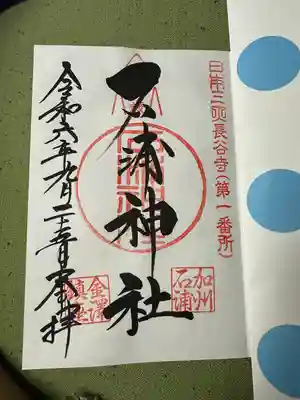 日本三所長谷寺(第一番所)
石浦神社
加州
石浦
令和六年九月二十三日奉拝
金澤
鎮座